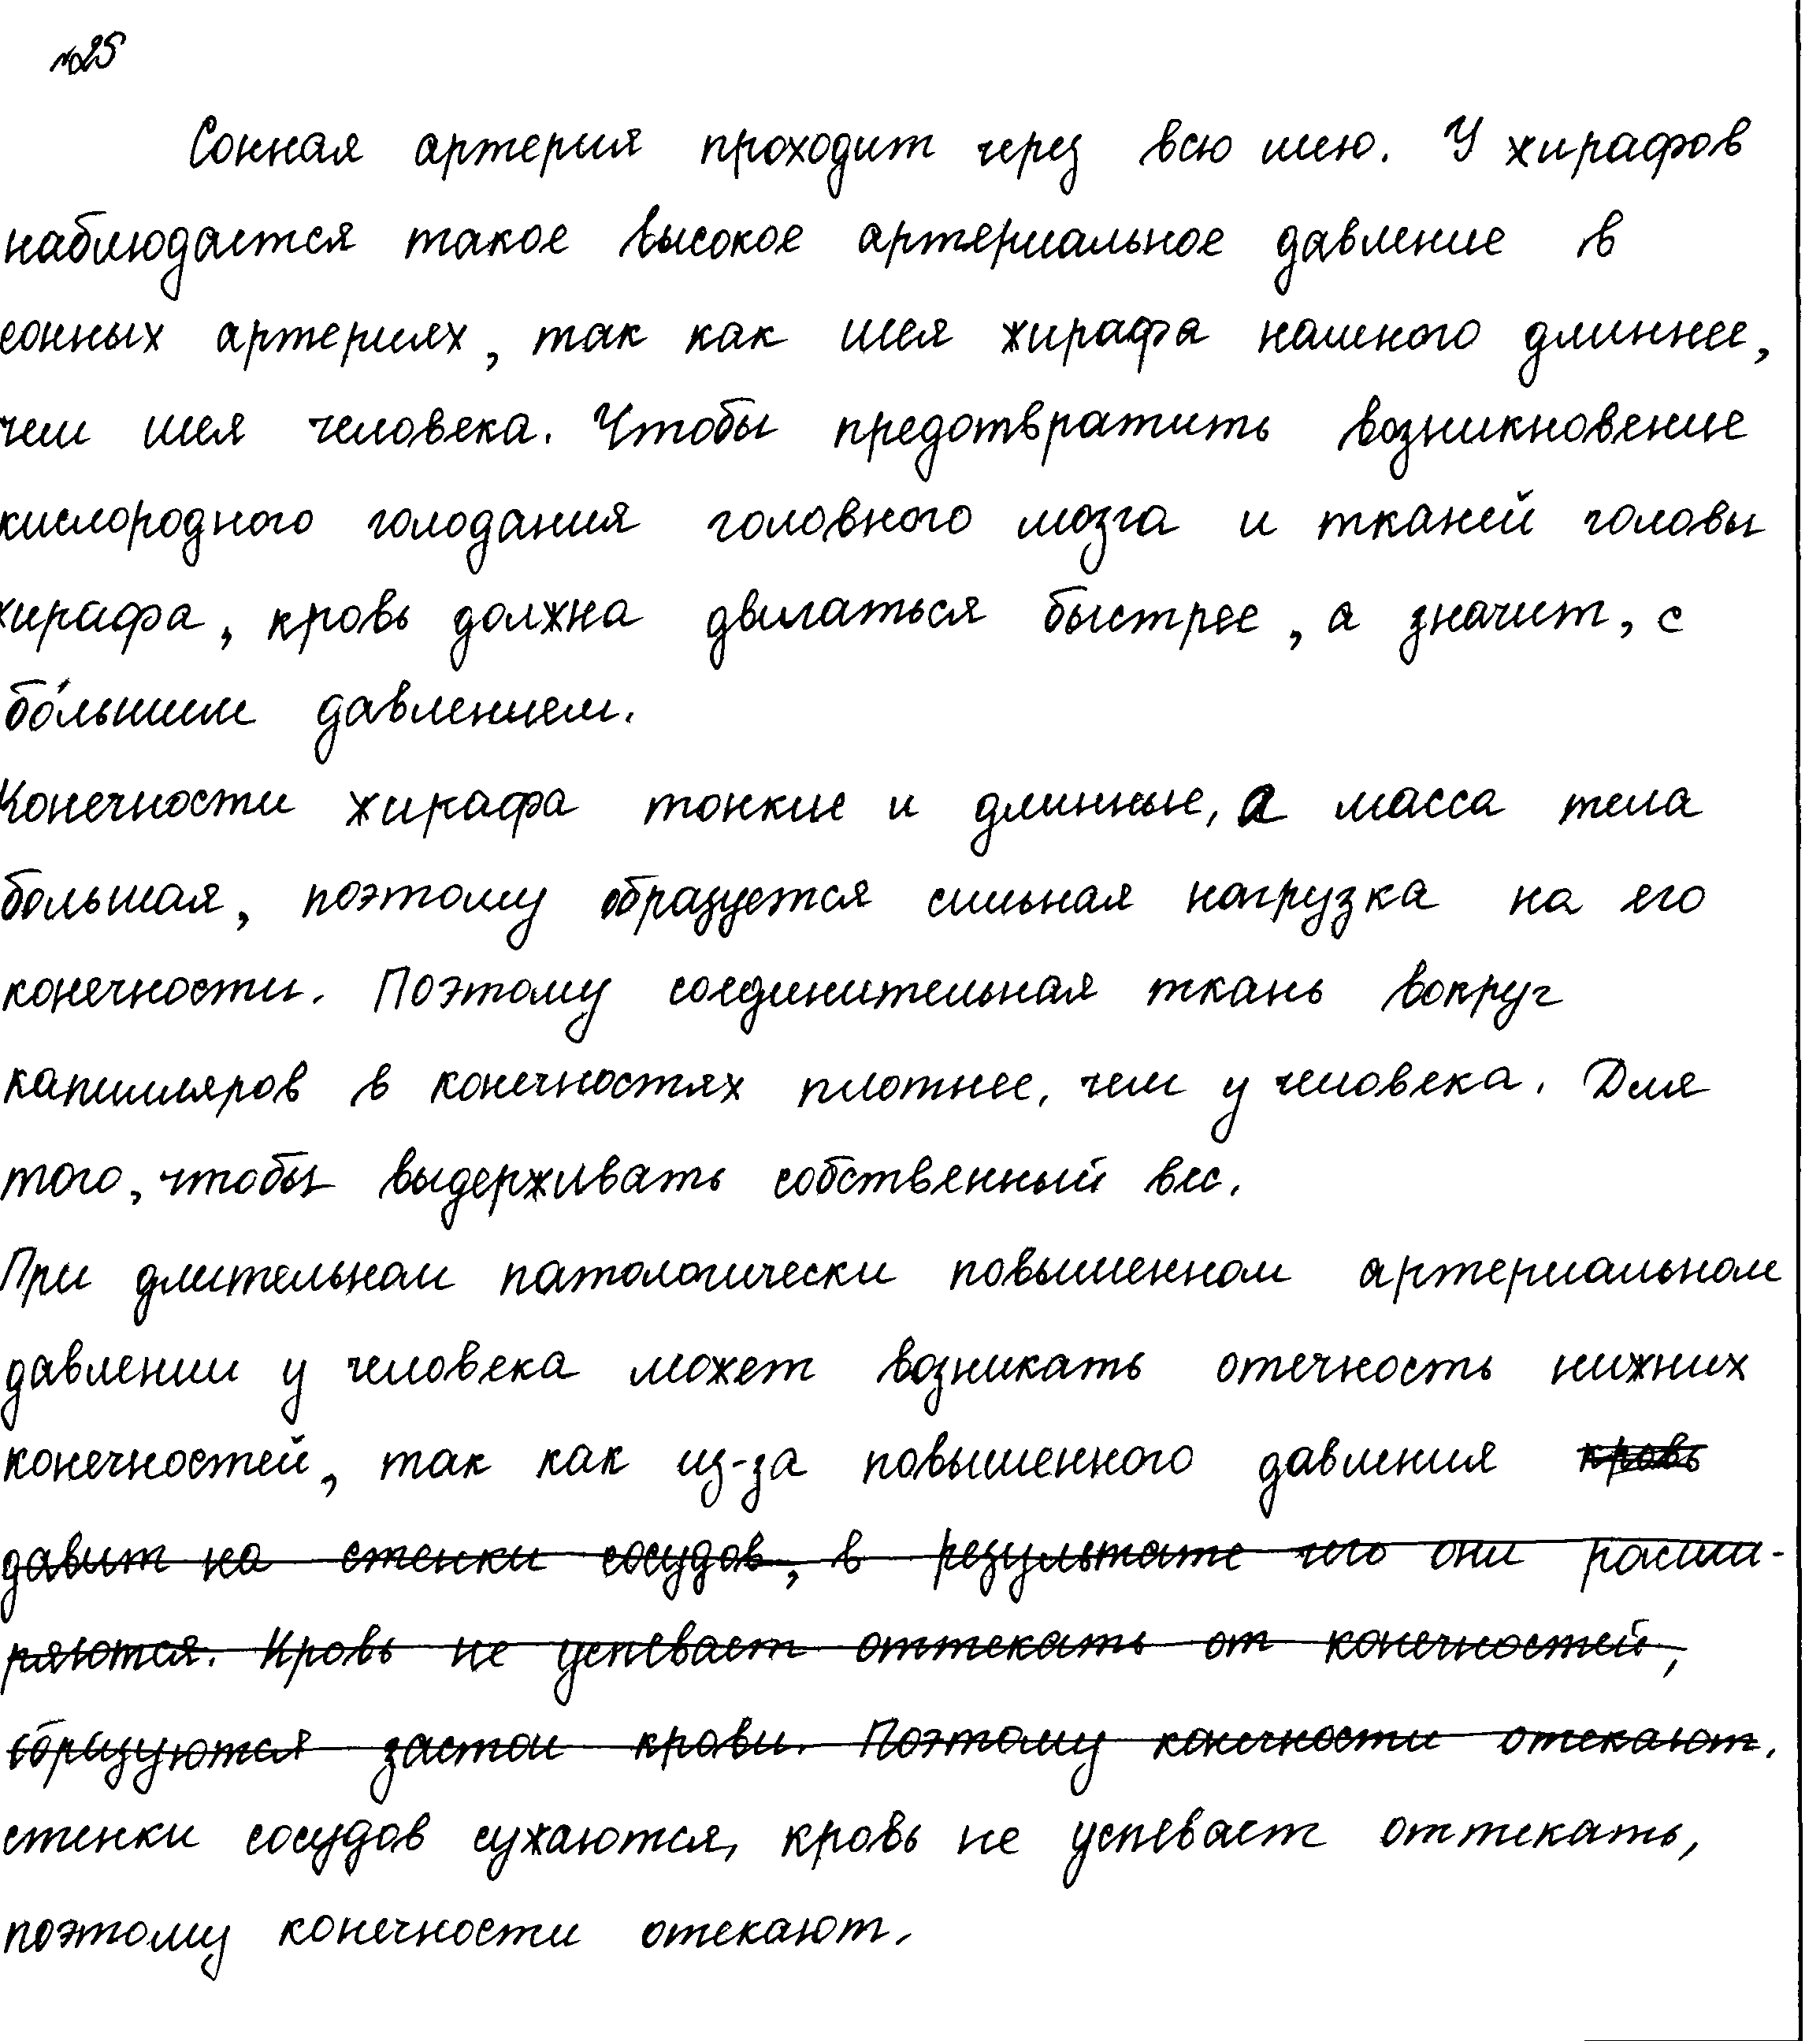 №25
Сонная артерия проходит через всю шею. У жирафов
наблюдается такое высокое артериальное давление в
сонных артериях, так как шея жирафа намного длиннее,
чем шея человека. Чтобы предотвратить возникновение
кислородного голодания головного мозга и тканей головы
жирафа, кровь должна двигаться быстрее, а значит, с
бо́льшим давлением.
Конечности жирафа тонкие и длинные, а масса тела
большая, поэтому образуется сильная нагрузка на его
конечности. Поэтому соединительная ткань вокруг
капилляров в конечностях плотнее, чем у человека. Для
того, чтобы выдерживать собственный вес.
При длительном патологически повышенном артериальном
давлении у человека может возникать отечность нижних
конечностей, так как из-за повышенного давления кровь
давит на стенки сосудов, в результате чего они расши-
ряются. Кровь не успевает оттекать от конечностей,
образуются застои крови. Поэтому конечности отекают.
стенки сосудов сужаются, кровь не успевает оттекать,
поэтому конечности отекают.